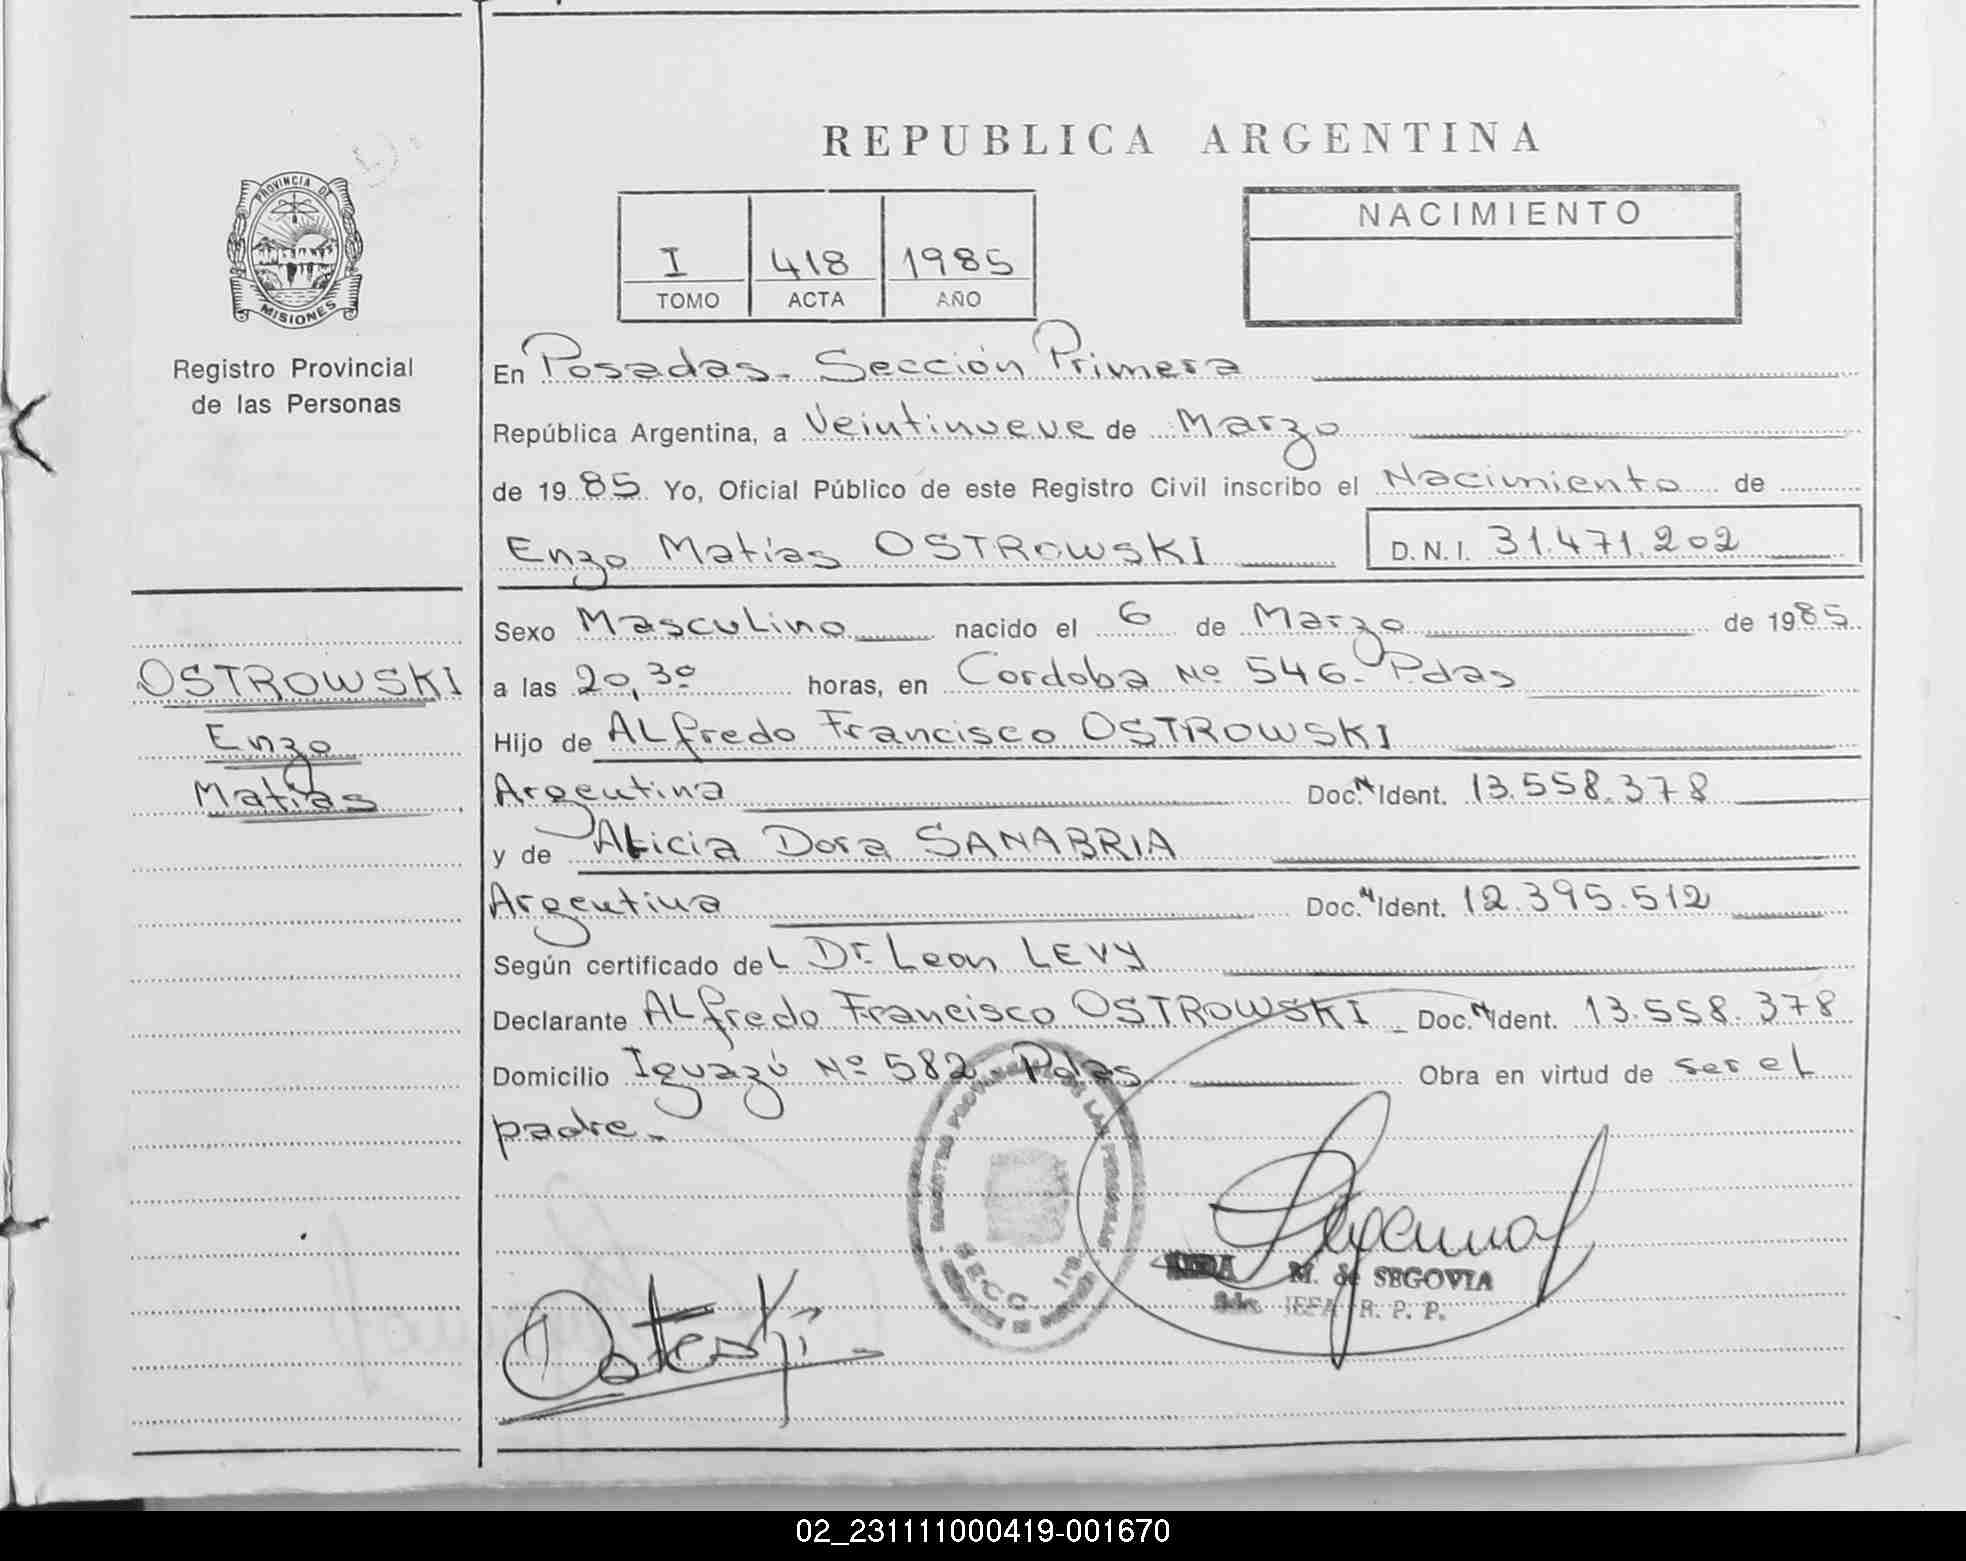 REPUBLICA ARGENTINA
PROVINCIA DE
MISIONES
Registro Provincial
de las Personas
I 418 1985
TOMO ACTA AÑO
NACIMIENTO
En Posadas. Sección Primera
República Argentina, a Veintinueve de Marzo
de 1985 Yo, Oficial Público de este Registro Civil inscribo el Nacimiento de
Enzo Matías OSTROWSKI D.N.I. 31.471.202
Sexo Masculino nacido el 6 de Marzo de 1985
a las 20,30 horas, en Cordoba Nº 546. Pdas
Hijo de Alfredo Francisco OSTROWSKI
Argentina Doc.N Ident. 13.558.378
y de Alicia Dora SANABRIA
Argentina Doc.N Ident. 12.395.512
Según certificado del Dr. Leon LEVY
Declarante Alfredo Francisco OSTROWSKI Doc.N Ident. 13.558.378
Domicilio Iguazú Nº 582. Pdas Obra en virtud de ser el
padre.
OSTROWSKI
Enzo
Matías
SECC. 1ra.
M. de SEGOVIA
JEFA R. P. P.
02_231111000419-001670